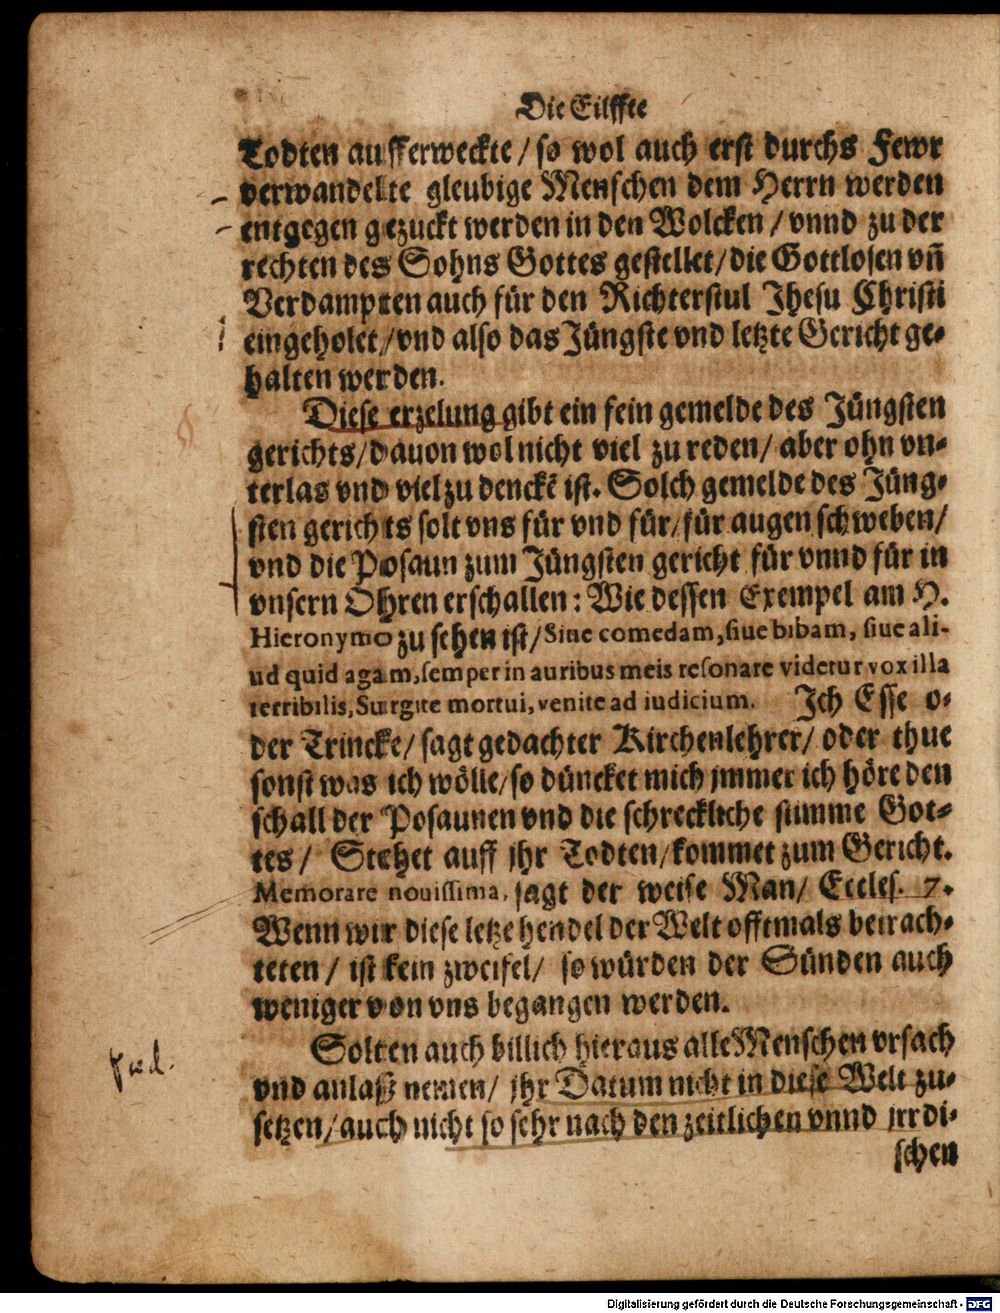 Die Eilffte
Todten aufferweckte / so wol auch erst durchs Fewr
verwandelte gleubige Menschen dem Herrn werden
entgegen gezuckt werden in den Wolcken / vnnd zu der
rechten des Sohns Gottes gestellet / die Gottlosen vñ
Verdampten auch für den Richterstul Jhesu Christi
eingeholet / vnd also das Jüngste vnd letzte Gericht ge-
halten werden.
Diese erzelung gibt ein fein gemelde des Jüngsten
gerichts / dauon wol nicht viel zu reden / aber ohn vn-
terlas vnd viel zu denckē ist. Solch gemelde des Jüng-
sten gerichts solt vns für vnd für / für augen schweben /
vnd die Posaun zum Jüngsten gericht für vnnd für in
vnsern Ohren erschallen: Wie dessen Exempel am H.
Hieronymo zu sehen ist / Siue comedam, siue bibam, siue ali-
ud quid agam, semper in auribus meis resonare videtur vox illa
terribilis, Surgite mortui, venite ad iudicium. Ich Esse o-
der Trincke / sagt gedachter Kirchenlehrer / oder thue
sonst was ich wölle / so düncket mich jmmer ich höre den
schall der Posaunen vnd die schreckliche stimme Got-
tes / Stehet auff jhr Todten / kommet zum Gericht.
Memorare nouissima, sagt der weise Man / Eccles. 7.
Wenn wir diese letze hendel der Welt offtmals betrach-
teten / ist kein zweifel / so würden der Sünden auch
weniger von vns begangen werden.
Solten auch billich hieraus alle Menschen vrsach
vnd anlaß nemen / jhr Datum nicht in diese Welt zu-
setzen / auch nicht so sehr nach den zeitlichen vnnd jrrdi-
schen
Digitalisierung gefördert durch die Deutsche Forschungsgemeinschaft - DFG